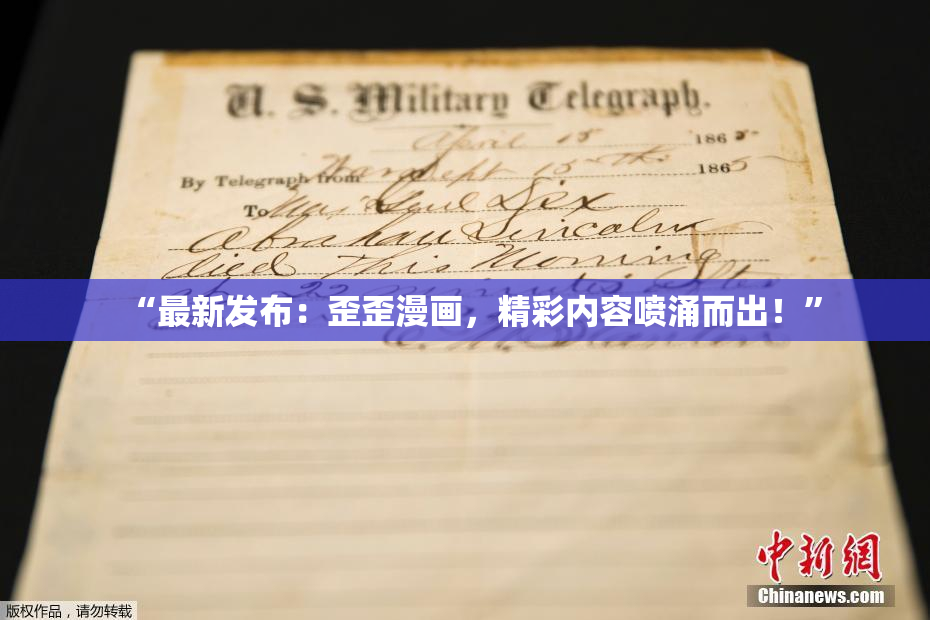 U. S. Military Telegraph.
April 15 1865-
By Telegraph from War Dept 15th 1865
To Maj Genl Dix
Abraham Lincoln
died This Morning
22 minutes after
“最新发布：歪歪漫画，精彩内容喷涌而出！”
中新网
Chinanews.com
版权作品，请勿转载